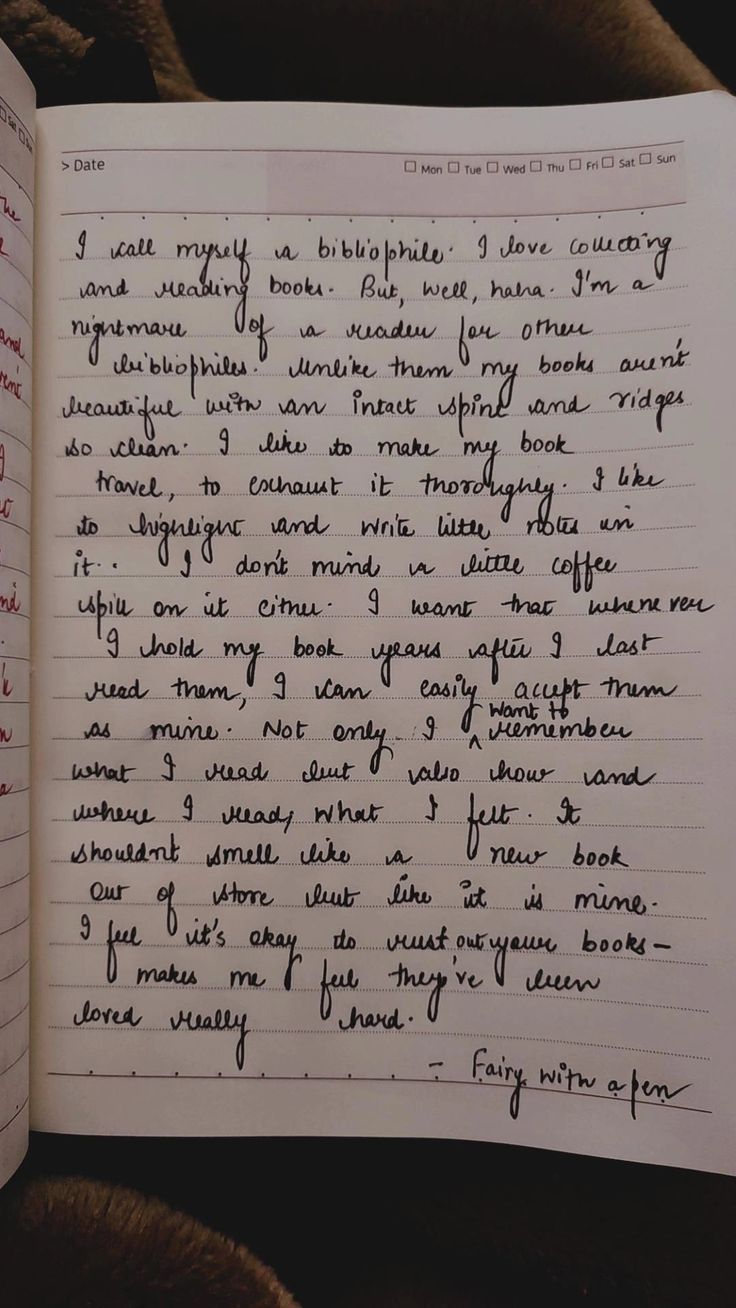 > Date
Mon Tue Wed Thu Fri Sat Sun
I call myself a bibliophile. I love collecting
and reading books. But, well, haha. I'm a
nightmare of a reader for other
bibliophiles. Unlike them my books aren't
beautiful with an intact spine and ridges
so clean. I like to make my book
travel, to exhaust it thoroughly. I like
to highlight and write little notes in
it.. I don't mind a little coffee
spill on it either. I want that whenever
I hold my book years after I last
read them, I can easily accept them
as mine. Not only I want to remember
what I read but also how and
where I read, what I felt. It
shouldn't smell like a new book
out of store but like it is mine.
I feel it's okay to rust out your books—
makes me feel they've been
loved really hard.
- Fairy with a pen